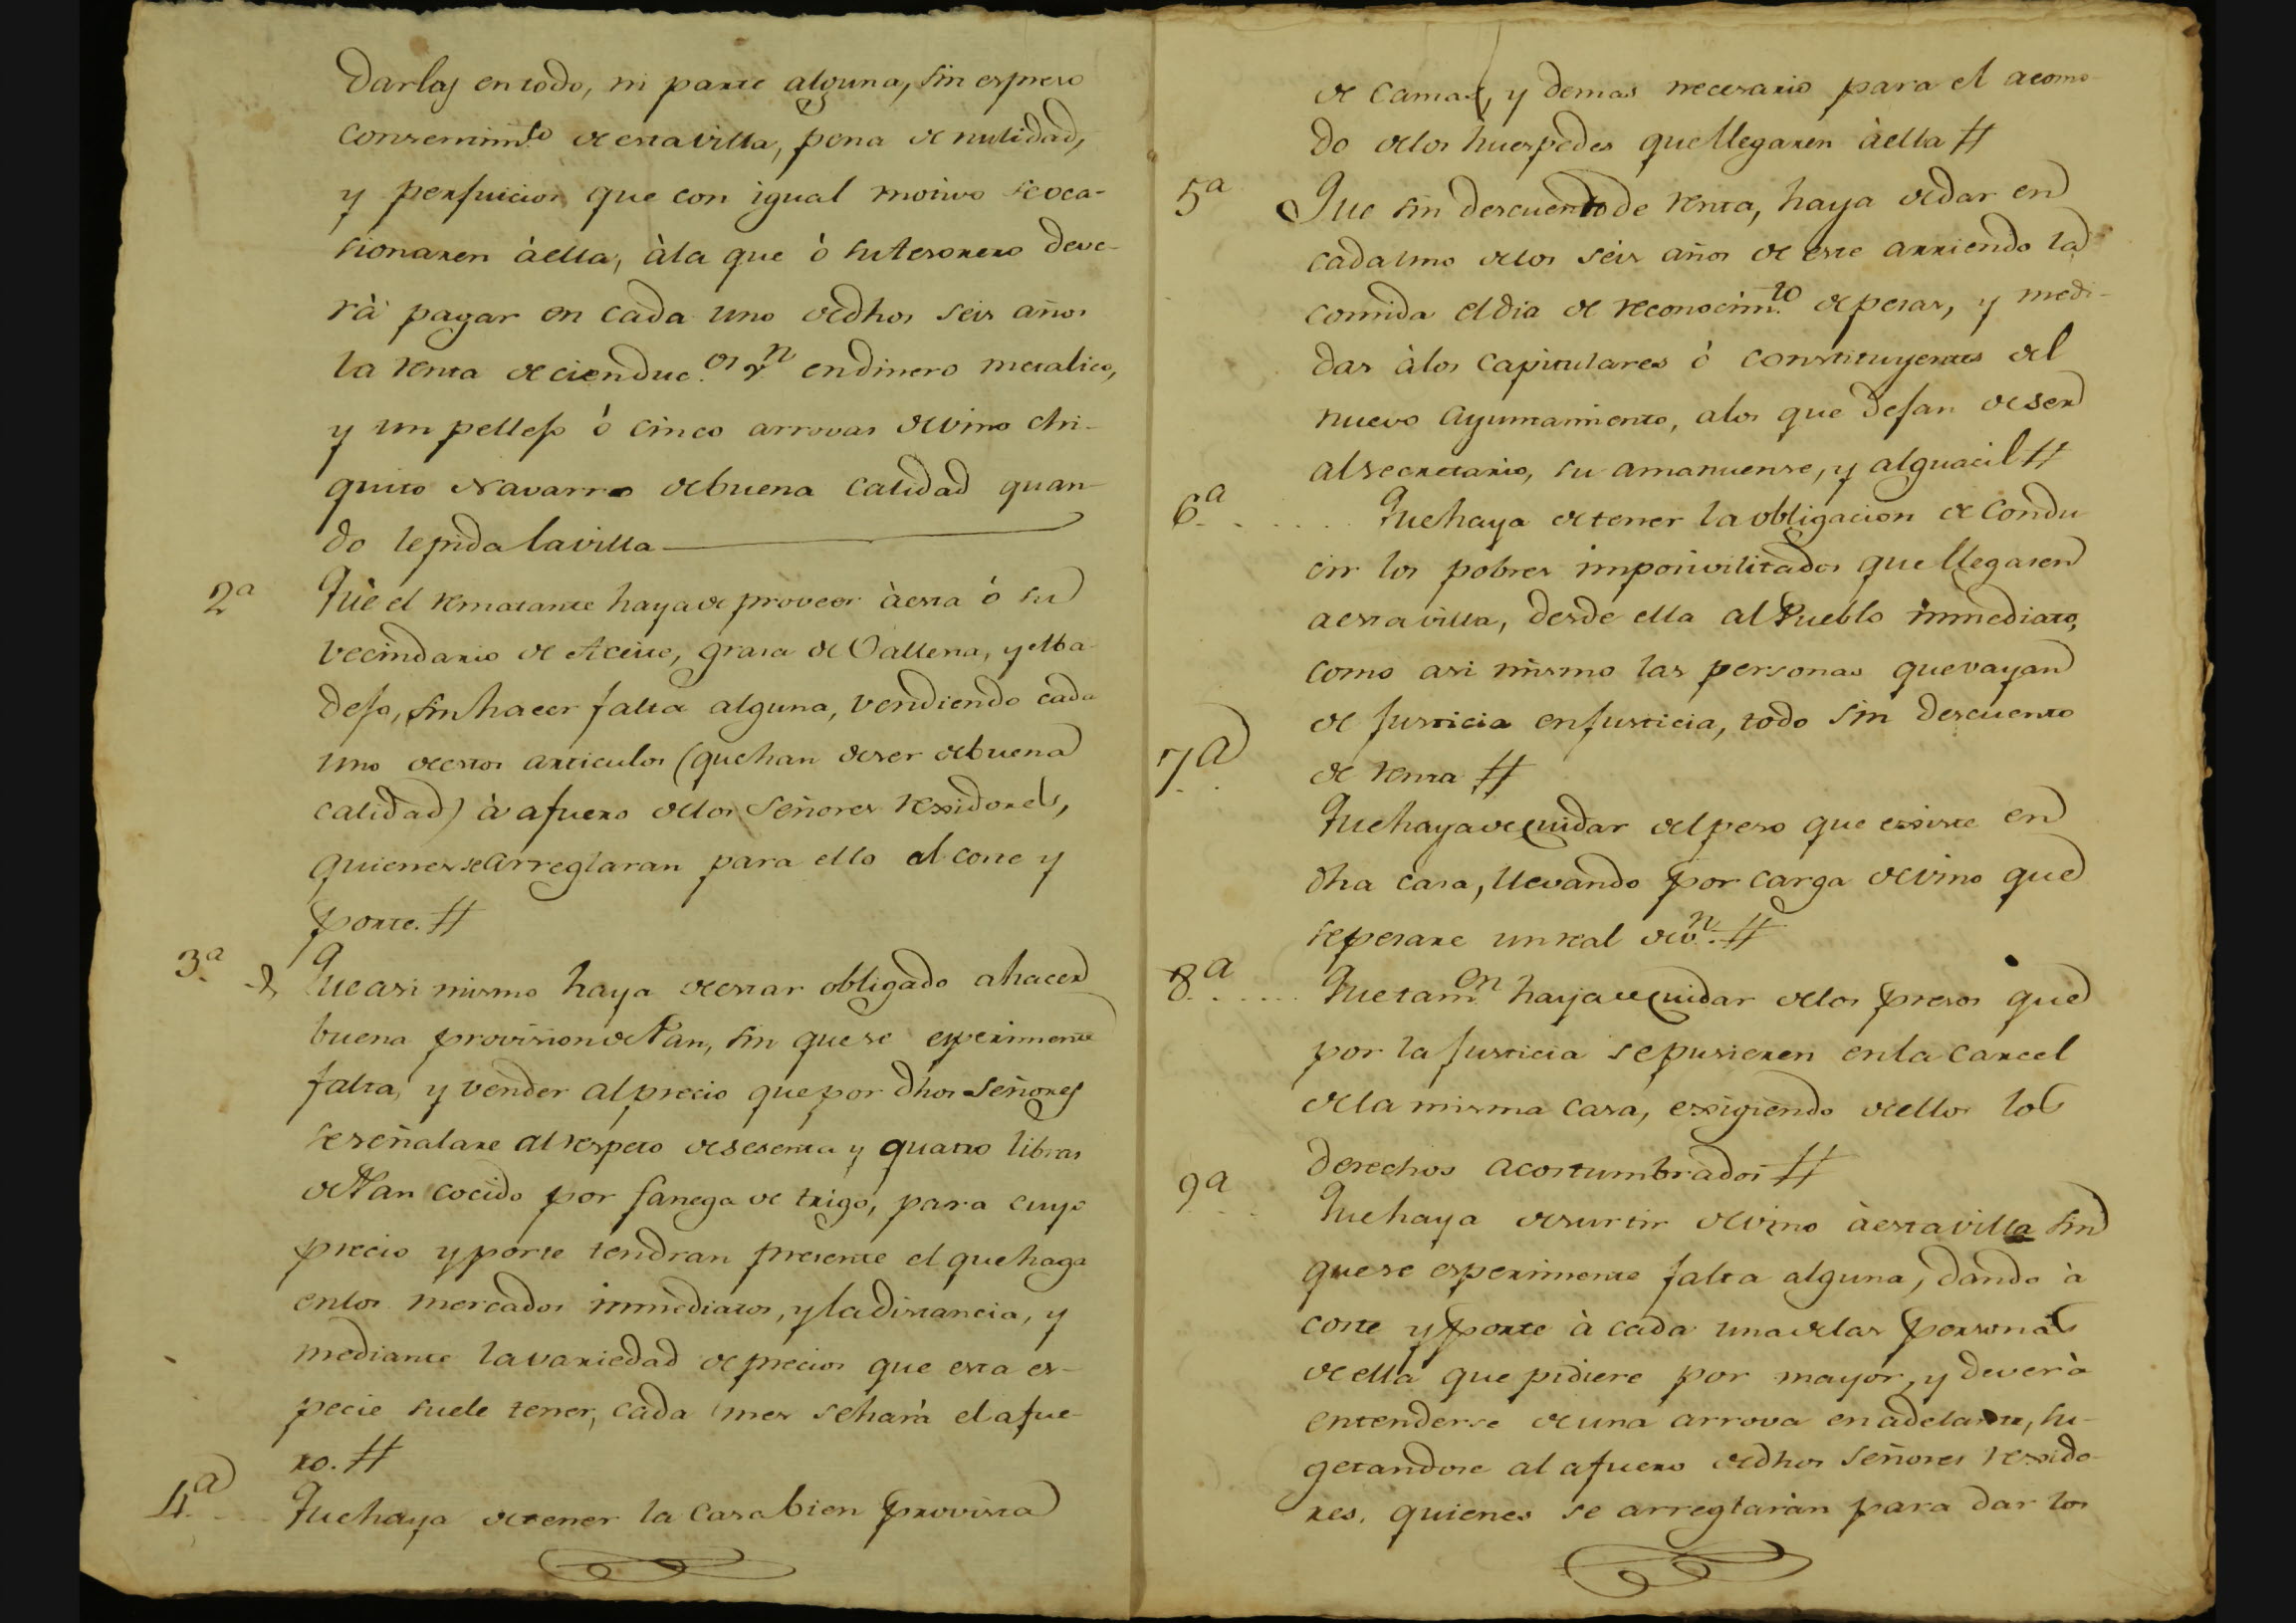 darlas en todo, ni parte alguna, sin espreso
consentim.to de esta villa, pena de nulidad,
y perjuicios que con igual motivo se oca-
sionaren à ella, àla que ò su tesorero deve-
rà pagar en cada uno de dhos seis años
la renta de cien duc.os v.n en dinero metalico,
y un pellejo ò cinco arrovas de vino chi-
quito Navarro de buena calidad quan-
do le pida la villa
2a Què el rematante haya de proveer à esta ó su
vecindario de Aceite, grasa de Vallena, y Aba-
dejo, sin hacer falta alguna, vendiendo cada
uno de estos articulos (que han de ser de buena
calidad) à afuero de los Señores rexidores,
quienes se arreglaran para ello al coste y
porte. #
3.a Que asi mismo haya de estar obligado a hacer
buena provision de Pan, sin que se experimente
falta, y vender al precio que por dhos Señores
se señalare al respeto de sesenta y quatro libras
de Pan cocido por fanega de trigo, para cuyo
precio y porte tendran presente el que haga
en los mercados inmediatos, y la distancia, y
mediante la variedad de precios que esta es-
pecie suele tener, cada mes se harà el afue-
ro. #
4.a Que haya de tener la casa bien provista
de camas, y demas necesario para el acomo-
do de los huespedes que llegaren àella #
5a Que sin descuento de renta, haya de dar en
cada uno de los seis años de este arriendo la
comida el dia de reconocim.to de pesas, y medi-
das àlos capitulares ò constituyentes del
nuevo Ayuntamiento, a los que dejan de ser
al secretario, su amanuense, y alguacil #
6.a Que haya de tener la obligacion de condu
cir los pobres imposivilitados que llegasen
a esta villa, desde ella al Pueblo inmediato,
como asi mismo las personas que vayan
de Justicia en Justicia, todo sin descuento
de renta #
7a
Que haya de cuidar del peso que existe en
dha casa, llevando por carga de vino que
se pesare un real de v.n #
8a Que tam.en haya de cuidar de los presos que
por la Justicia se pusieren en la carcel
de la misma casa, exigiendo de ellos los
derechos acostumbrados #
9a
Que haya de surtir de vino à esta villa sin
que se esperimente falta alguna, dando à
coste y porte à cada una de las personas
de ella que pidiere por mayor, y deverà
entenderse de una arrova en adelante, su-
getandose al afuero de dhos Señores rexido-
res, quienes se arreglaràn para dar los